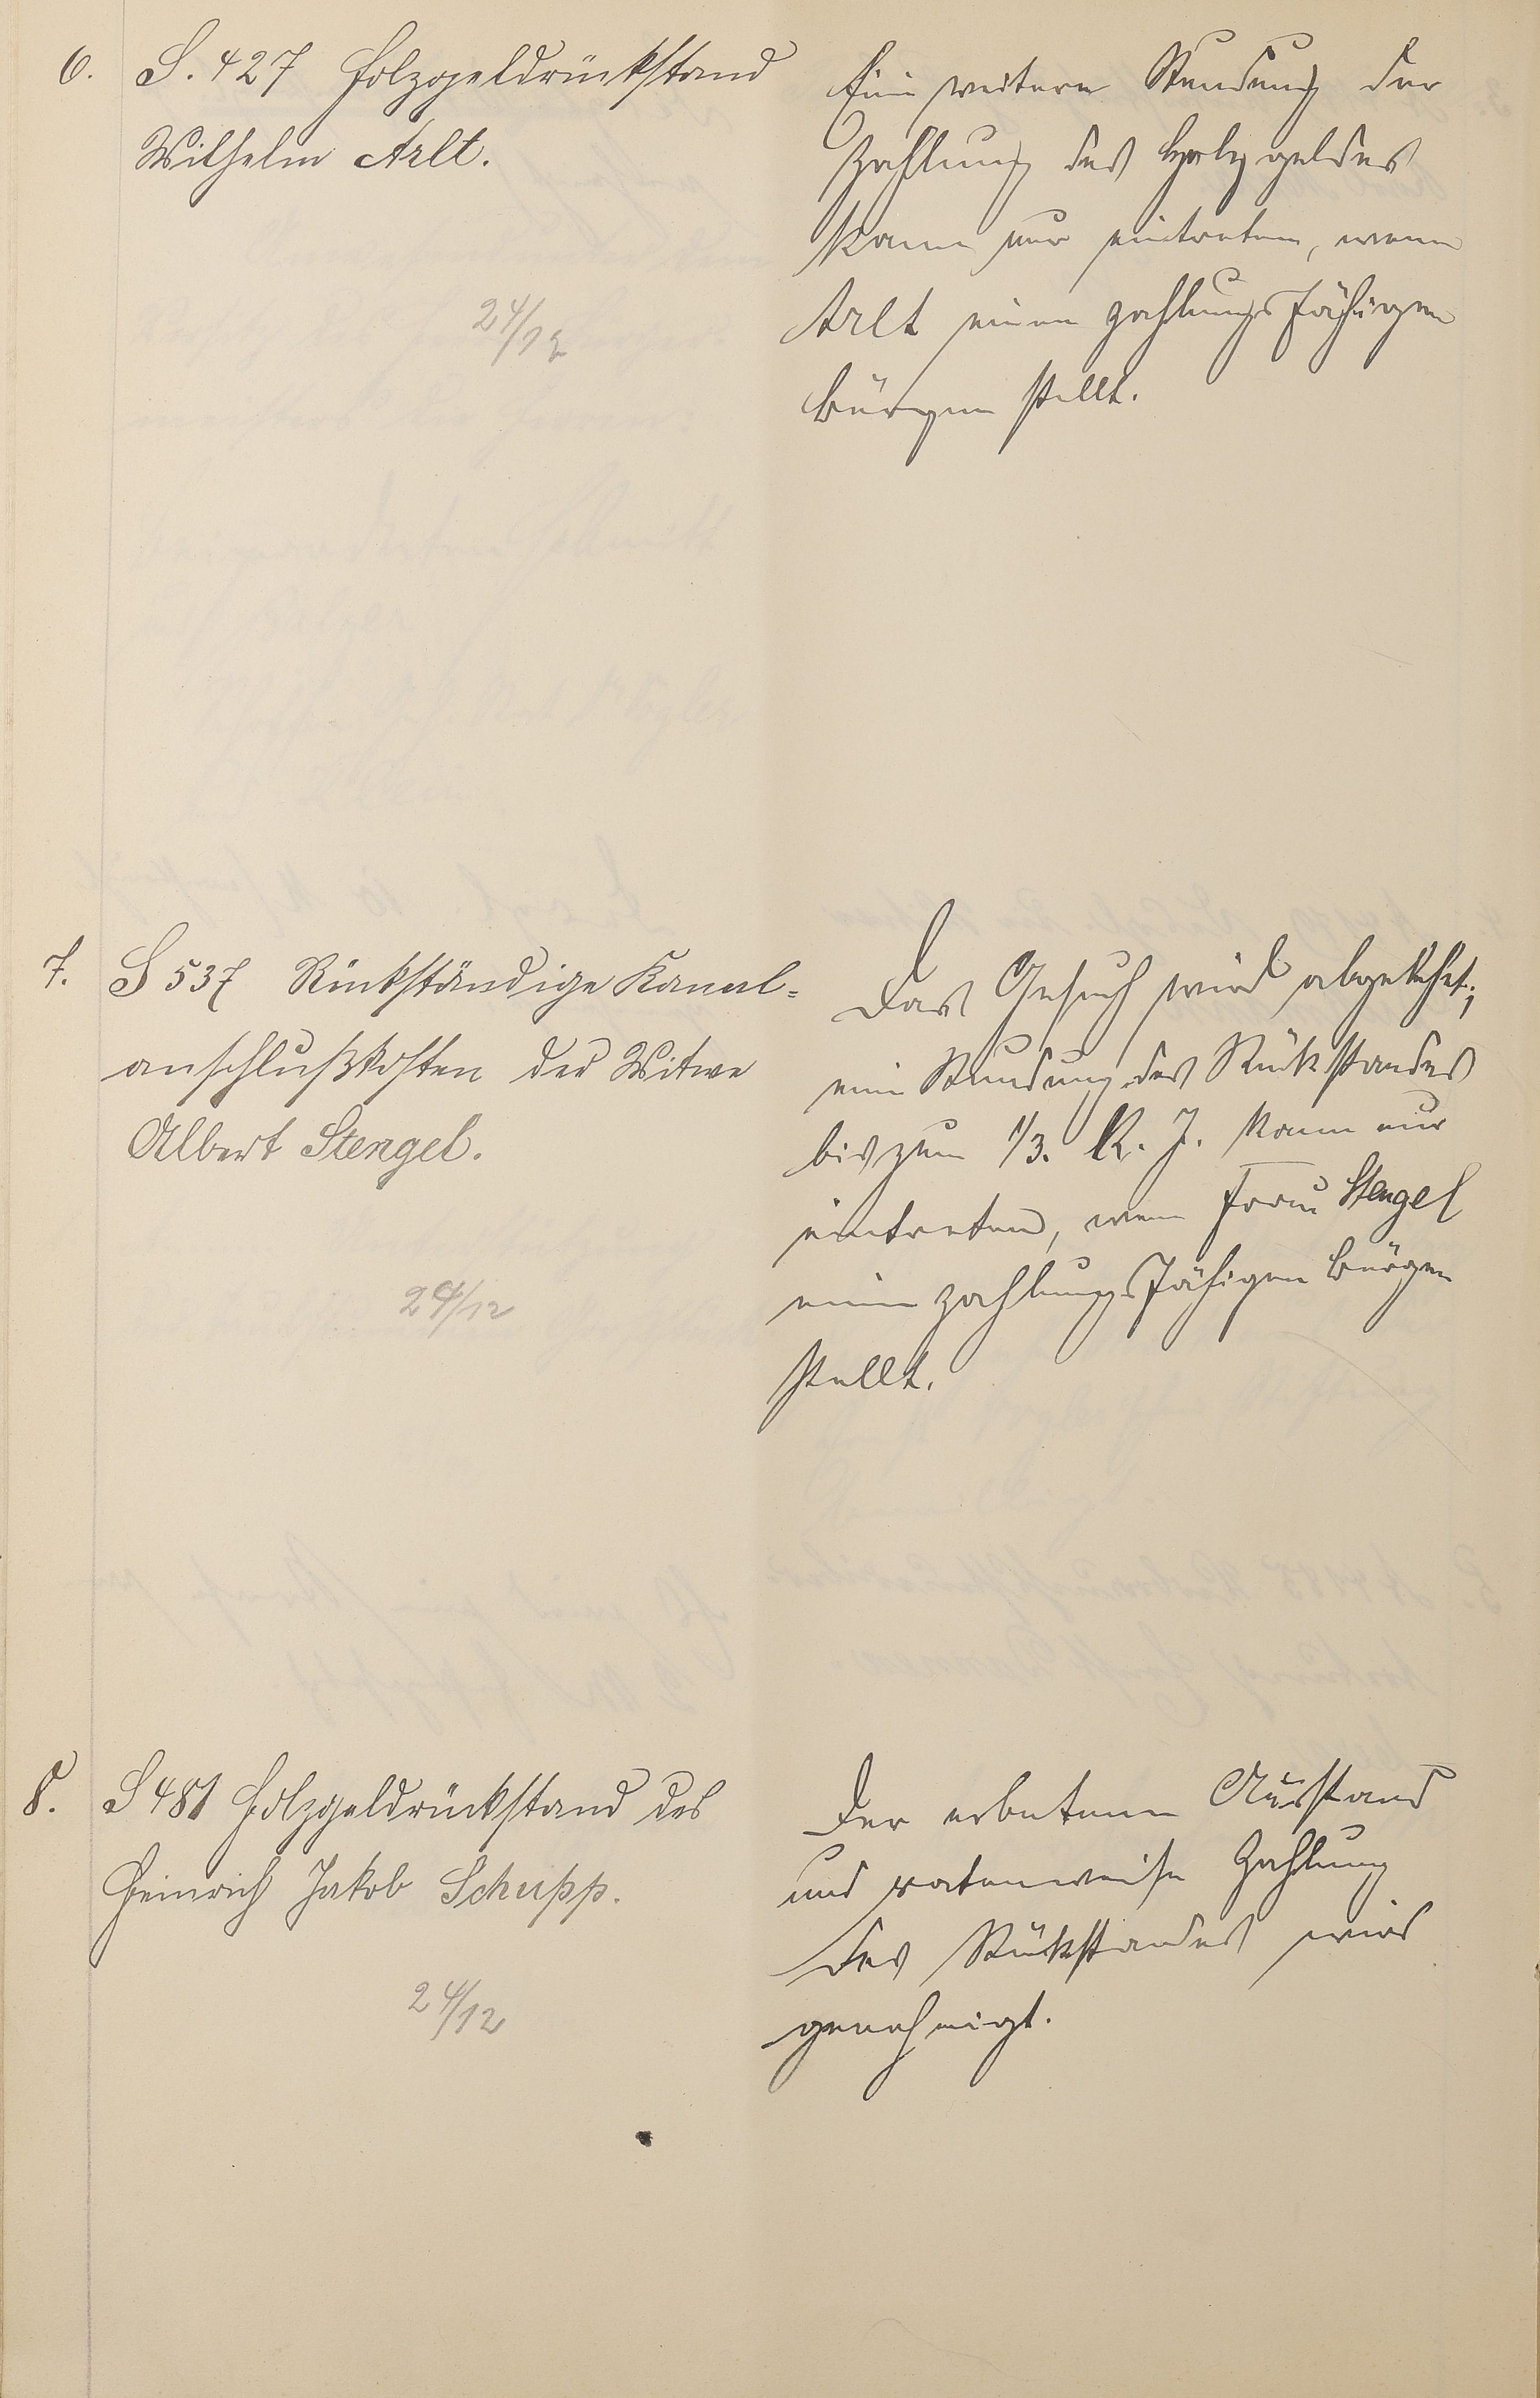 6. S. 427 Holzgeldrückstand
Wilhelm Arlt.
24/12
Eine weitere Stundung der
Zahlung des Holzgeldes
kann nur eintreten, wenn
Arlt einen zahlungsfähigen
Bürgen stellt.
7. S 537 Rückständige Kanal-
anschlußkosten der Witwe
Albert Stengel.
24/12
Das Gesuch wird abgelehnt;
eine Stundung des Rückstandes
bis zum 1/3. k. J. kann nur
eintreten, wenn Frau Stengel
einen zahlungsfähigen Bürgen
stellt.
8. S 481 Holzgeldrückstand des
Heinrich Jakob Schupp.
24/12
Der erbetene Ausstand
und ratenweise Zahlung
des Rückstandes wird
genehmigt.